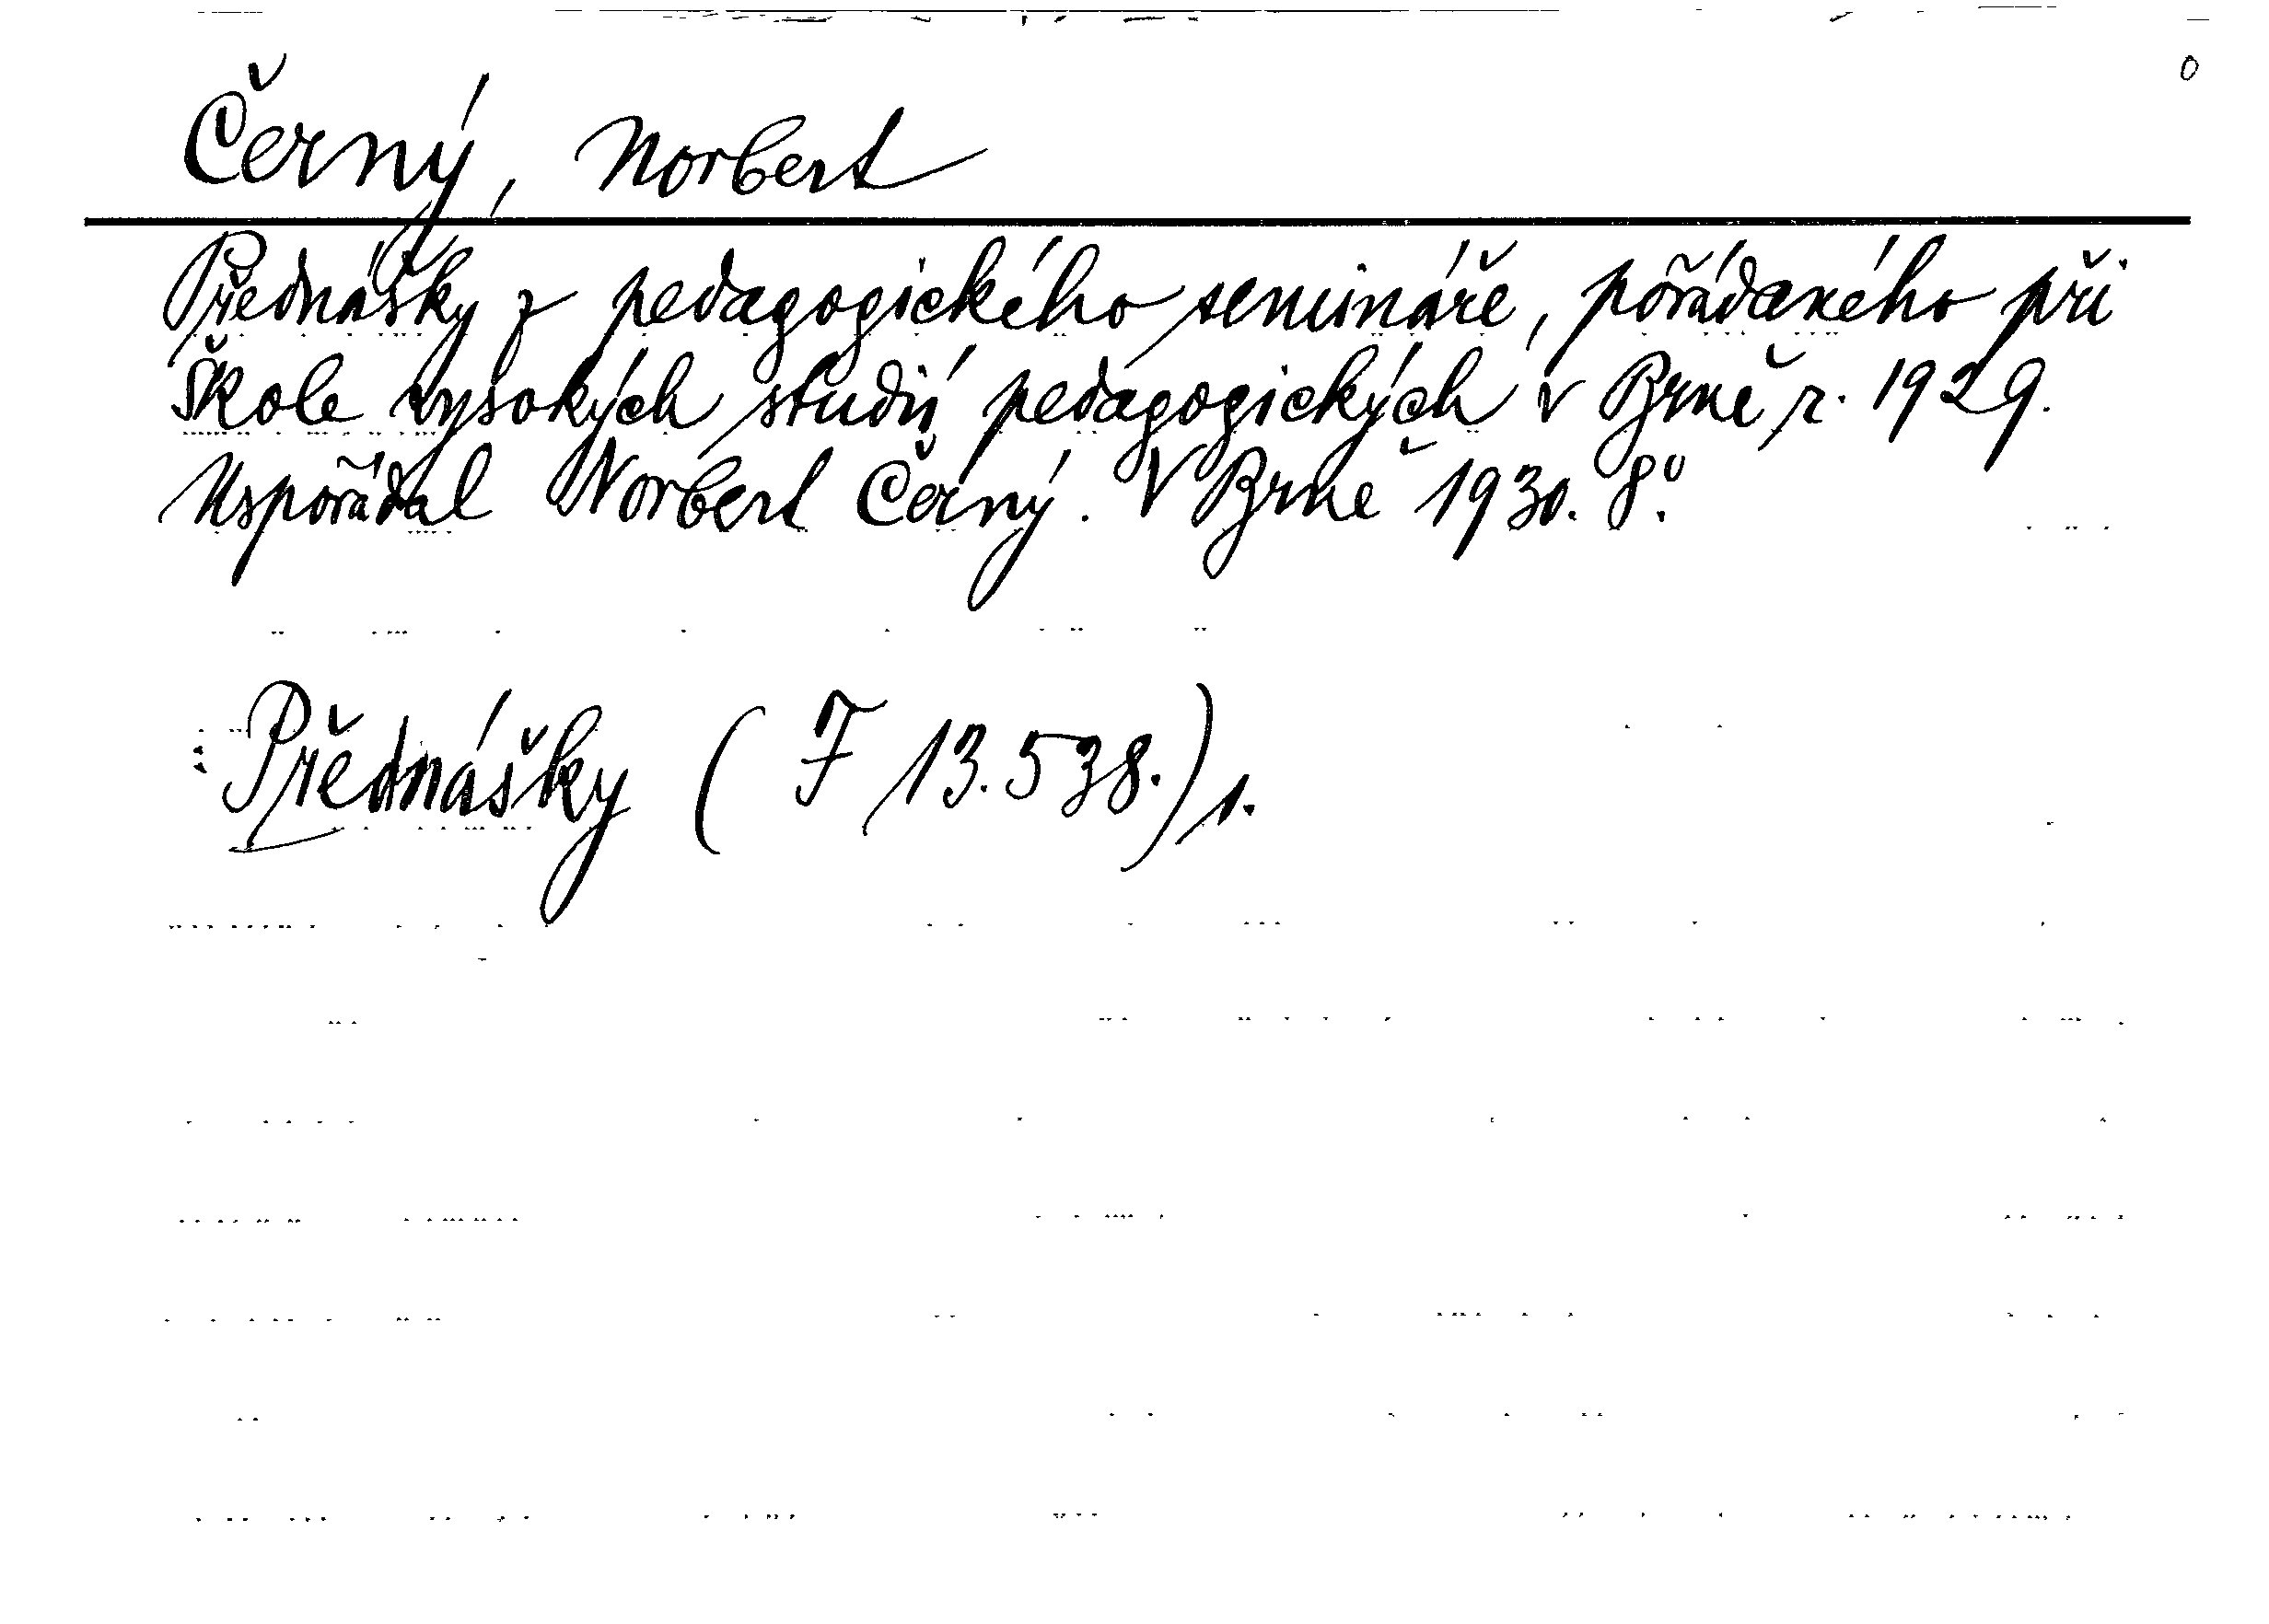 Černý, Norbert
Přednášky z pedagogického semináře, pořádaného při
škole vysokých studií pedagogických v Brně r. 1929.
Uspořádal Norbert Černý. V Brně 1930. 8º.
Přednášky (F 13.538.) 1.